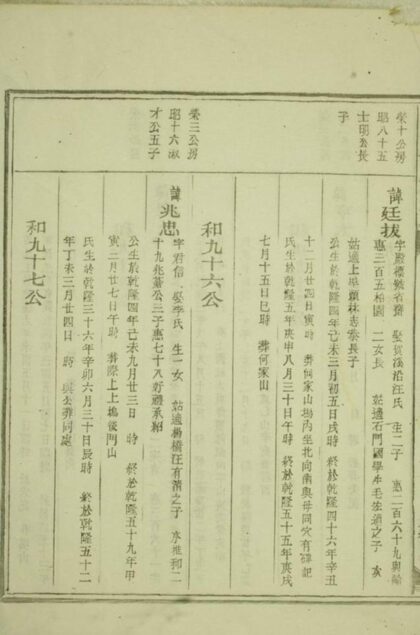 榮十公房
昭八十五
士明公長
子
諱廷拔
字殿標號省齋 娶賀溪沿汪氏 生二子 惠二百六十九與齡
惠三百五柏園 二女長 姑適石門國學生毛佐清之子 亥
姑適上呈嶺林志泰長子
公生於乾隆四年己未三月初五日戌時 終於乾隆四十六年辛丑
十二月廿四日寅時 葬何家山塢內坐北向南與母同穴有碑記
氏生於乾隆五年庚申八月三十日午時 終於乾隆五十五年庚戌
七月十五日巳時 葬何家山
和九十六公
榮三公房
昭十六淑
才公五子
諱兆忠
字君信 娶李氏 生一女 姑適楊橋汪有清之子 享推和二
十九兆基公三子惠七十八新禮承紹
公生於乾隆四年己未九月廿三日 時 終於乾隆五十九年甲
寅二月廿七日午時 葬際上上塢後門山
氏生於乾隆三十六年辛卯六月三十日辰時 終於乾隆五十二
年丁未三月廿四日 時 與公葬同處
和九十七公